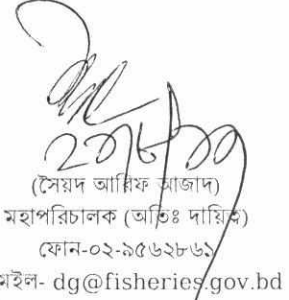 (সৈয়দ আরিফ আজাদ)
মহাপরিচালক (অতিঃ দায়িত্ব)
ফোন-০২-৯৫৬২৮৬১
মেইল- dg@fisheries.gov.bd